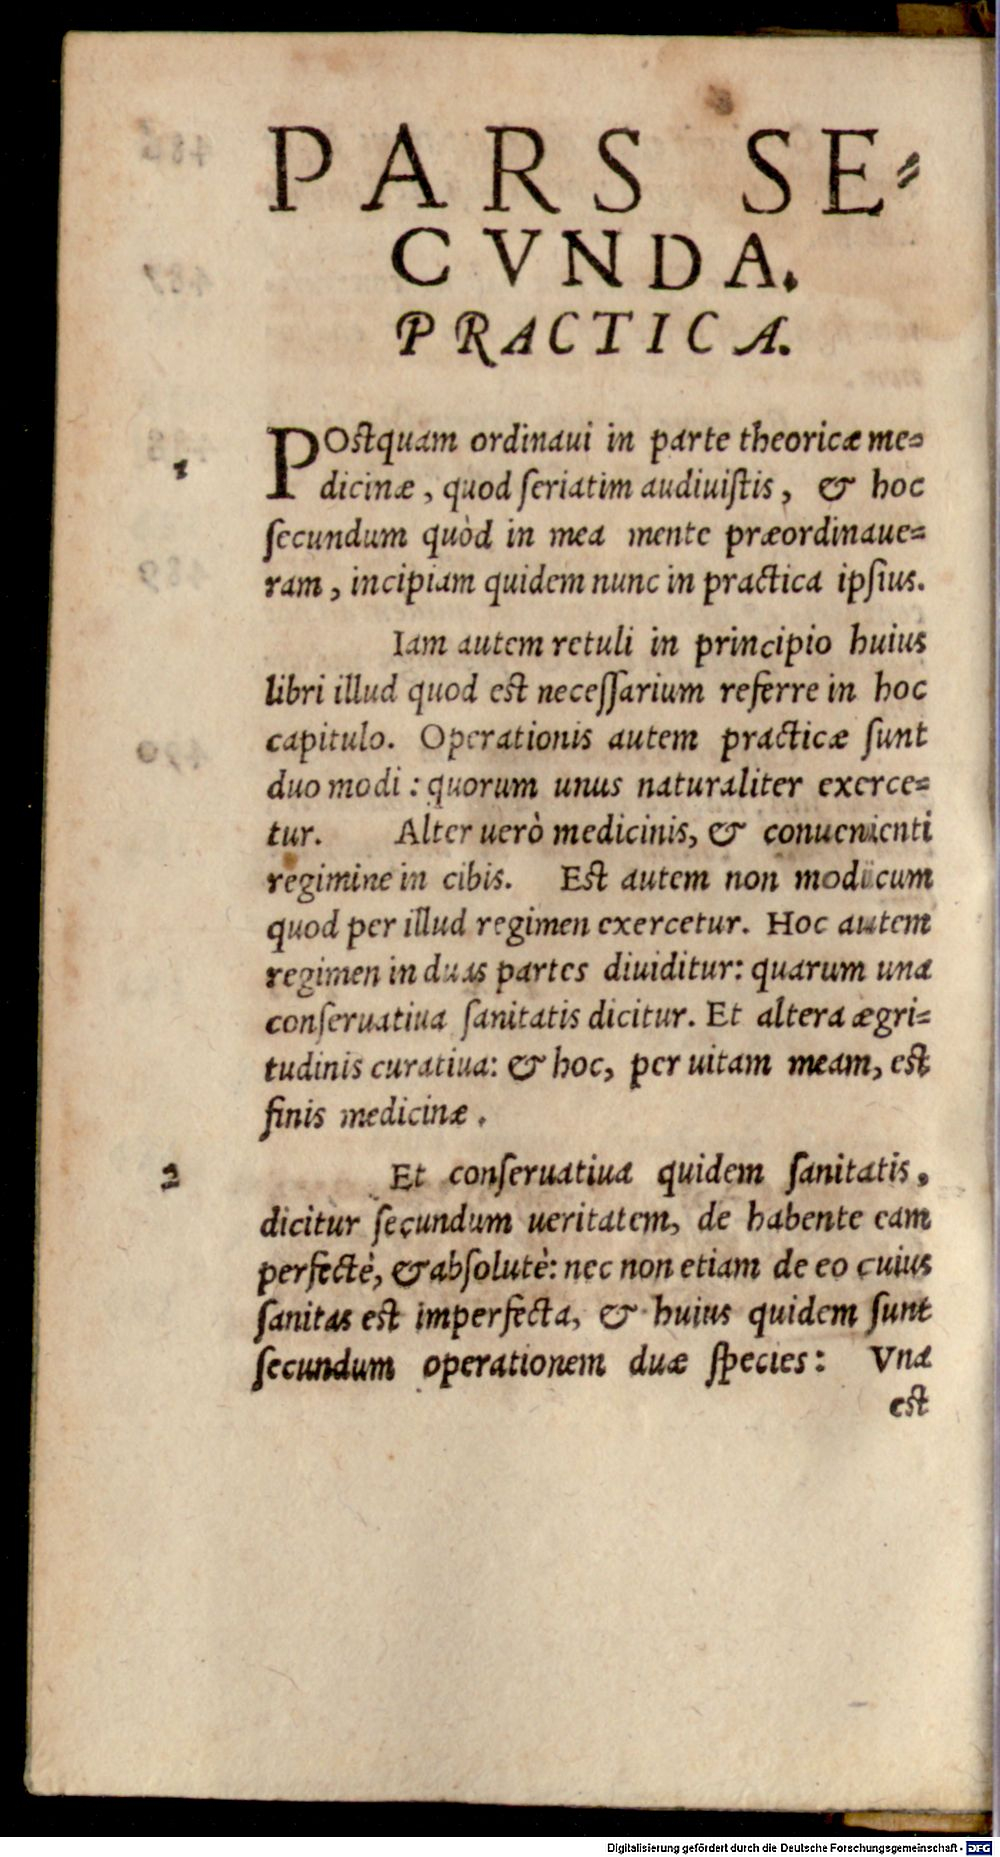 PARS SE-
CVNDA.
PRACTICA.
1
POstquam ordinaui in parte theoricæ me-
dicinæ, quod ſeriatim audiuiſtis, & hoc
ſecundum quòd in mea mente præordinaue-
ram, incipiam quidem nunc in practica ipſius.
Iam autem retuli in principio huius
libri illud quod est neceſſarium referre in hoc
capitulo. Operationis autem practicæ ſunt
duo modi: quorum unus naturaliter exerce-
tur. Alter uerò medicinis, & conuenienti
regimine in cibis. Est autem non modicum
quod per illud regimen exercetur. Hoc autem
regimen in duas partes diuiditur: quarum una
conſeruatiua ſanitatis dicitur. Et altera ægri-
tudinis curatiua: & hoc, per uitam meam, est
finis medicinæ.
2
Et conſeruatiua quidem ſanitatis,
dicitur ſecundum ueritatem, de habente eam
perfectè, & abſolutè: nec non etiam de eo cuius
ſanitas est imperfecta, & huius quidem ſunt
ſecundum operationem duæ ſpecies: Vna
est
Digitalisierung gefördert durch die Deutsche Forschungsgemeinschaft - DFG